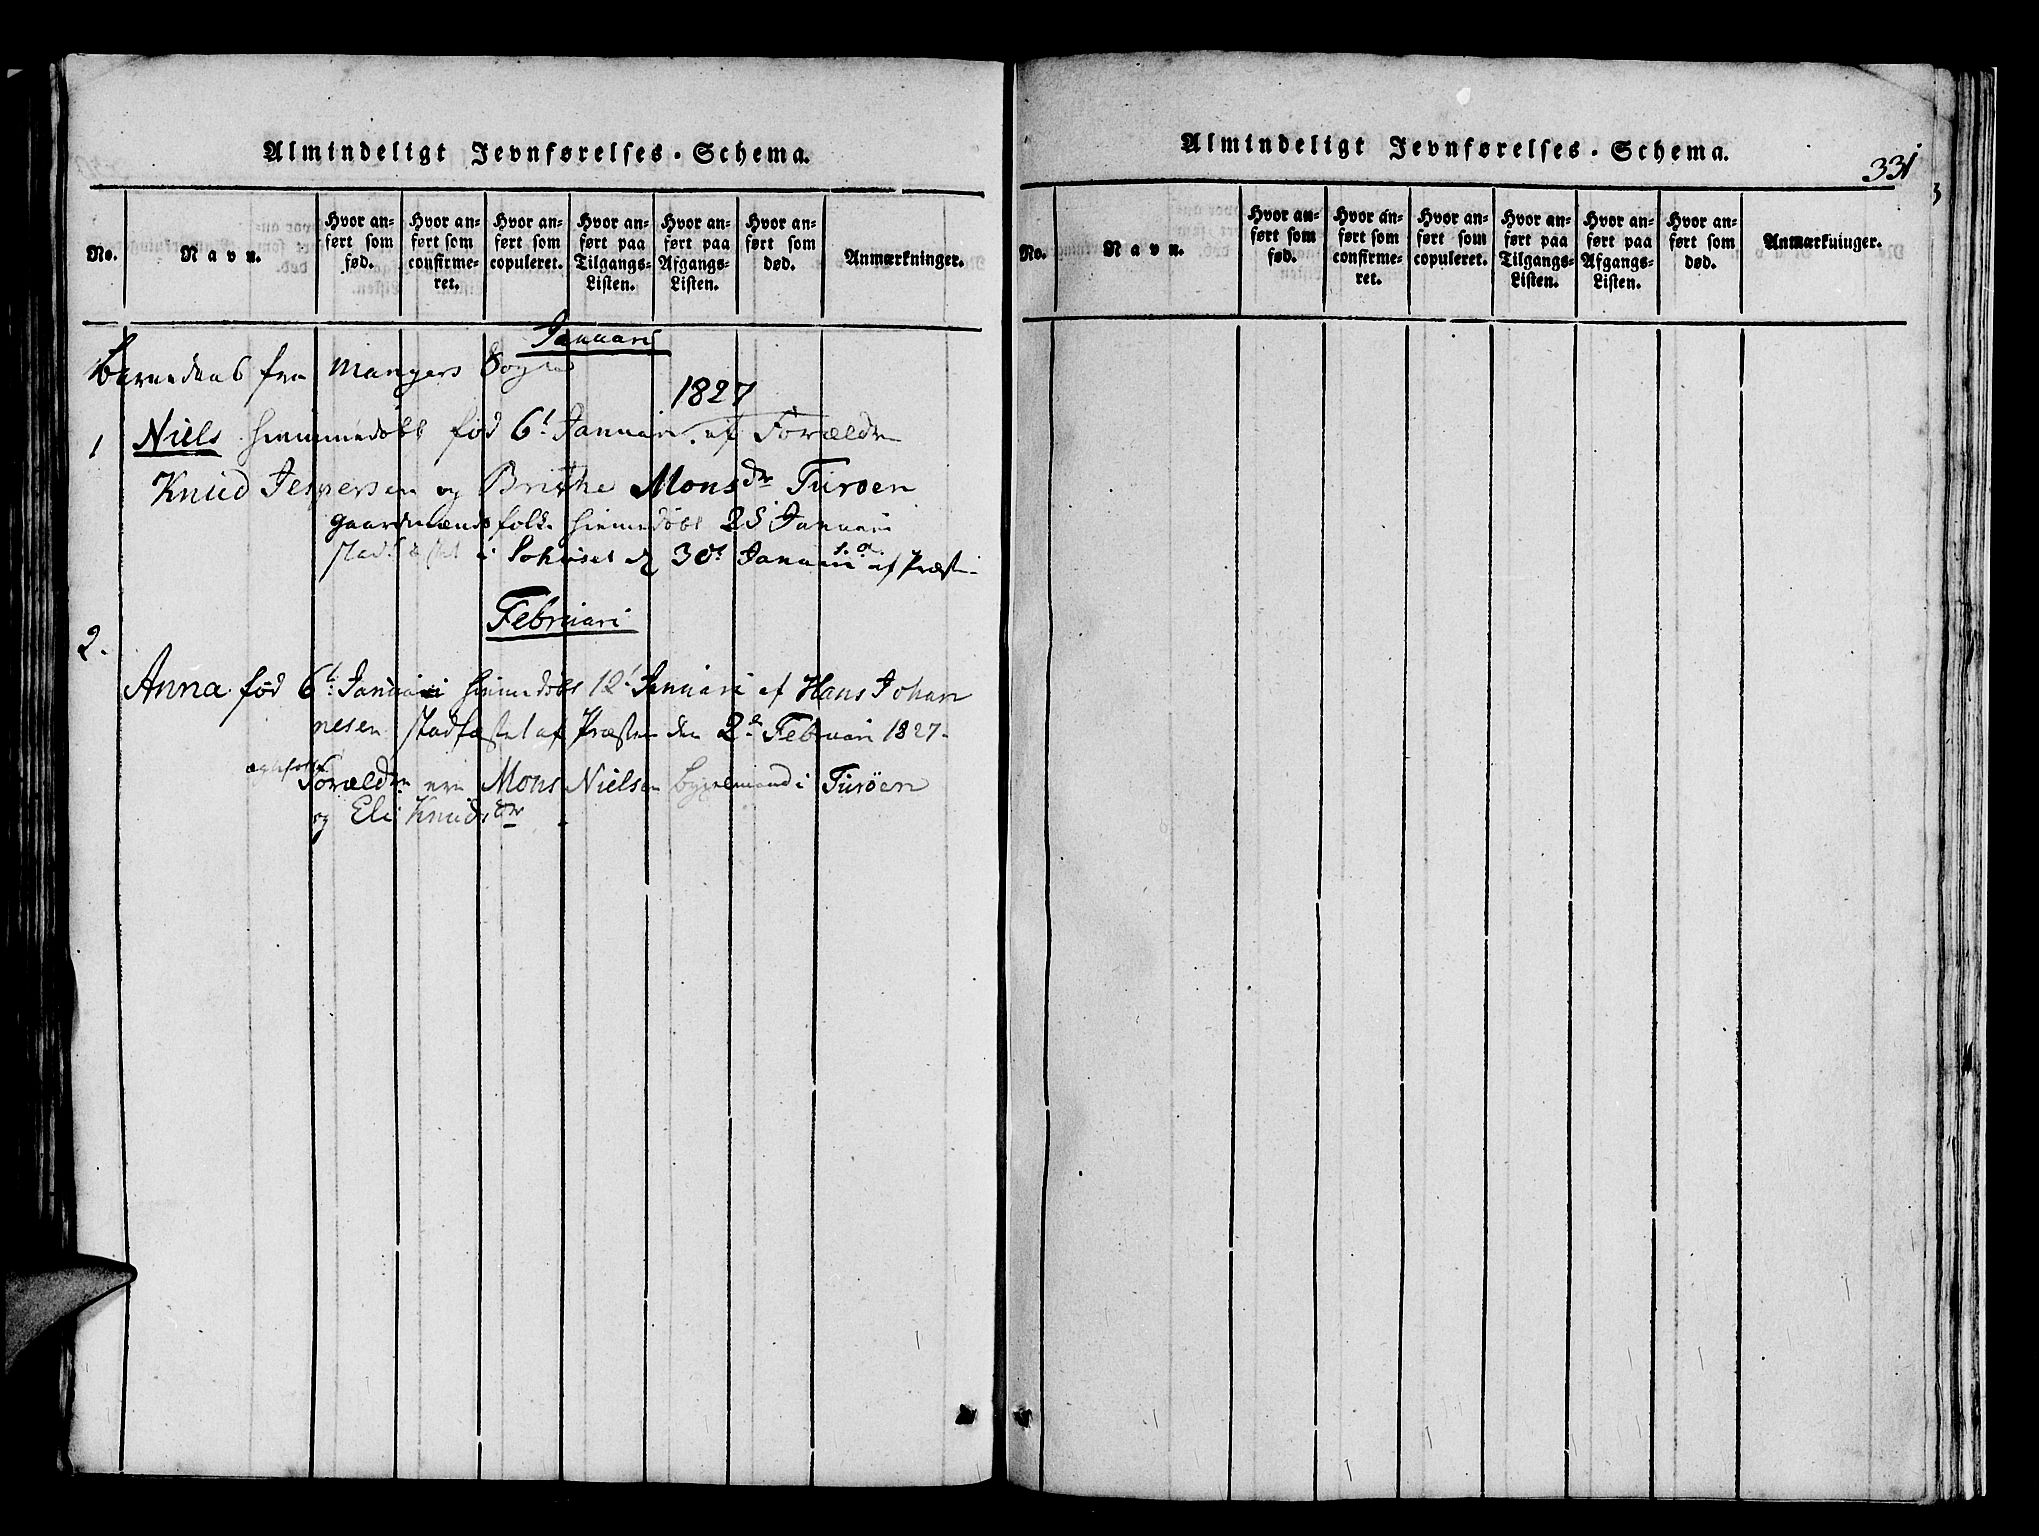 Almindeligt Jevnførelses-Schema.
No.
Navn.
Hvor an-
ført som
fød.
Hvor an-
ført som
confirme-
ret.
Hvor an-
ført som
copuleret.
Hvor an-
ført paa
Tilgangs-
Listen.
Hvor an-
ført paa
Afgangs-
Listen.
Hvor an-
ført som
død.
Anmærkninger.
Januari
Barnedaab fra Mangers Sogn
1827
1 Niels hiemmedøbt fød 6t Januari af Forældre
Knud Jespersen og Brithe Monsdr Turöen
hiemedøbt 25 Januari
i d 30t Januari s. a. af Præsten
Februari
2.
Anna fød 6t Januari hiemedøbt 12t Januari af Hans Johan
nesen stadfæstet af Præsten den 2d Februari 1827.
Forældre ere Mons Nielsen i Turöen
og Eli Knudsdr
Almindeligt Jevnførelses-Schema.
331
No.
Navn.
Hvor an-
ført som
fød.
Hvor an-
ført som
confirme-
ret.
Hvor an-
ført som
copuleret.
Hvor an-
ført paa
Tilgangs-
Listen.
Hvor an-
ført paa
Afgangs-
Listen.
Hvor an-
ført som
død.
Anmærkninger.